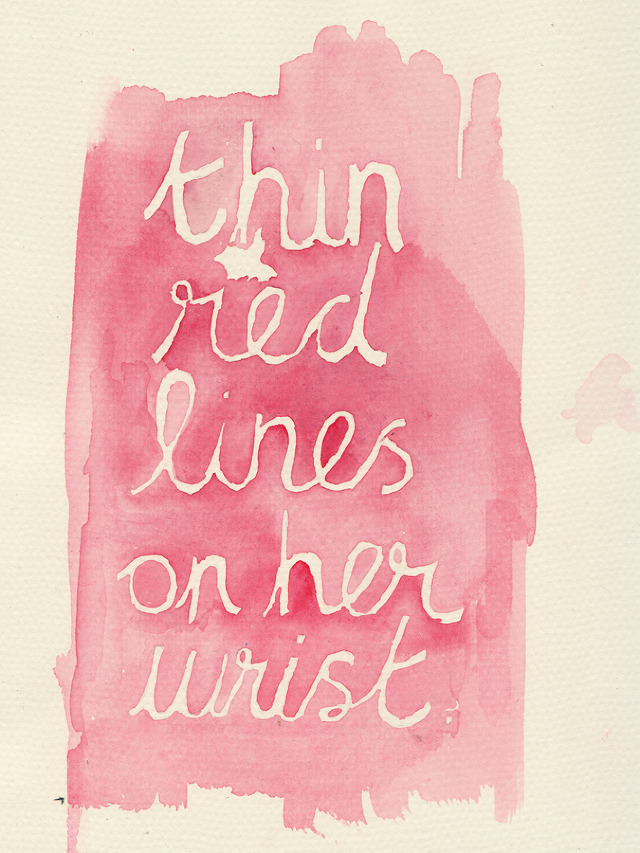 thin
red
lines
on her
wrist.